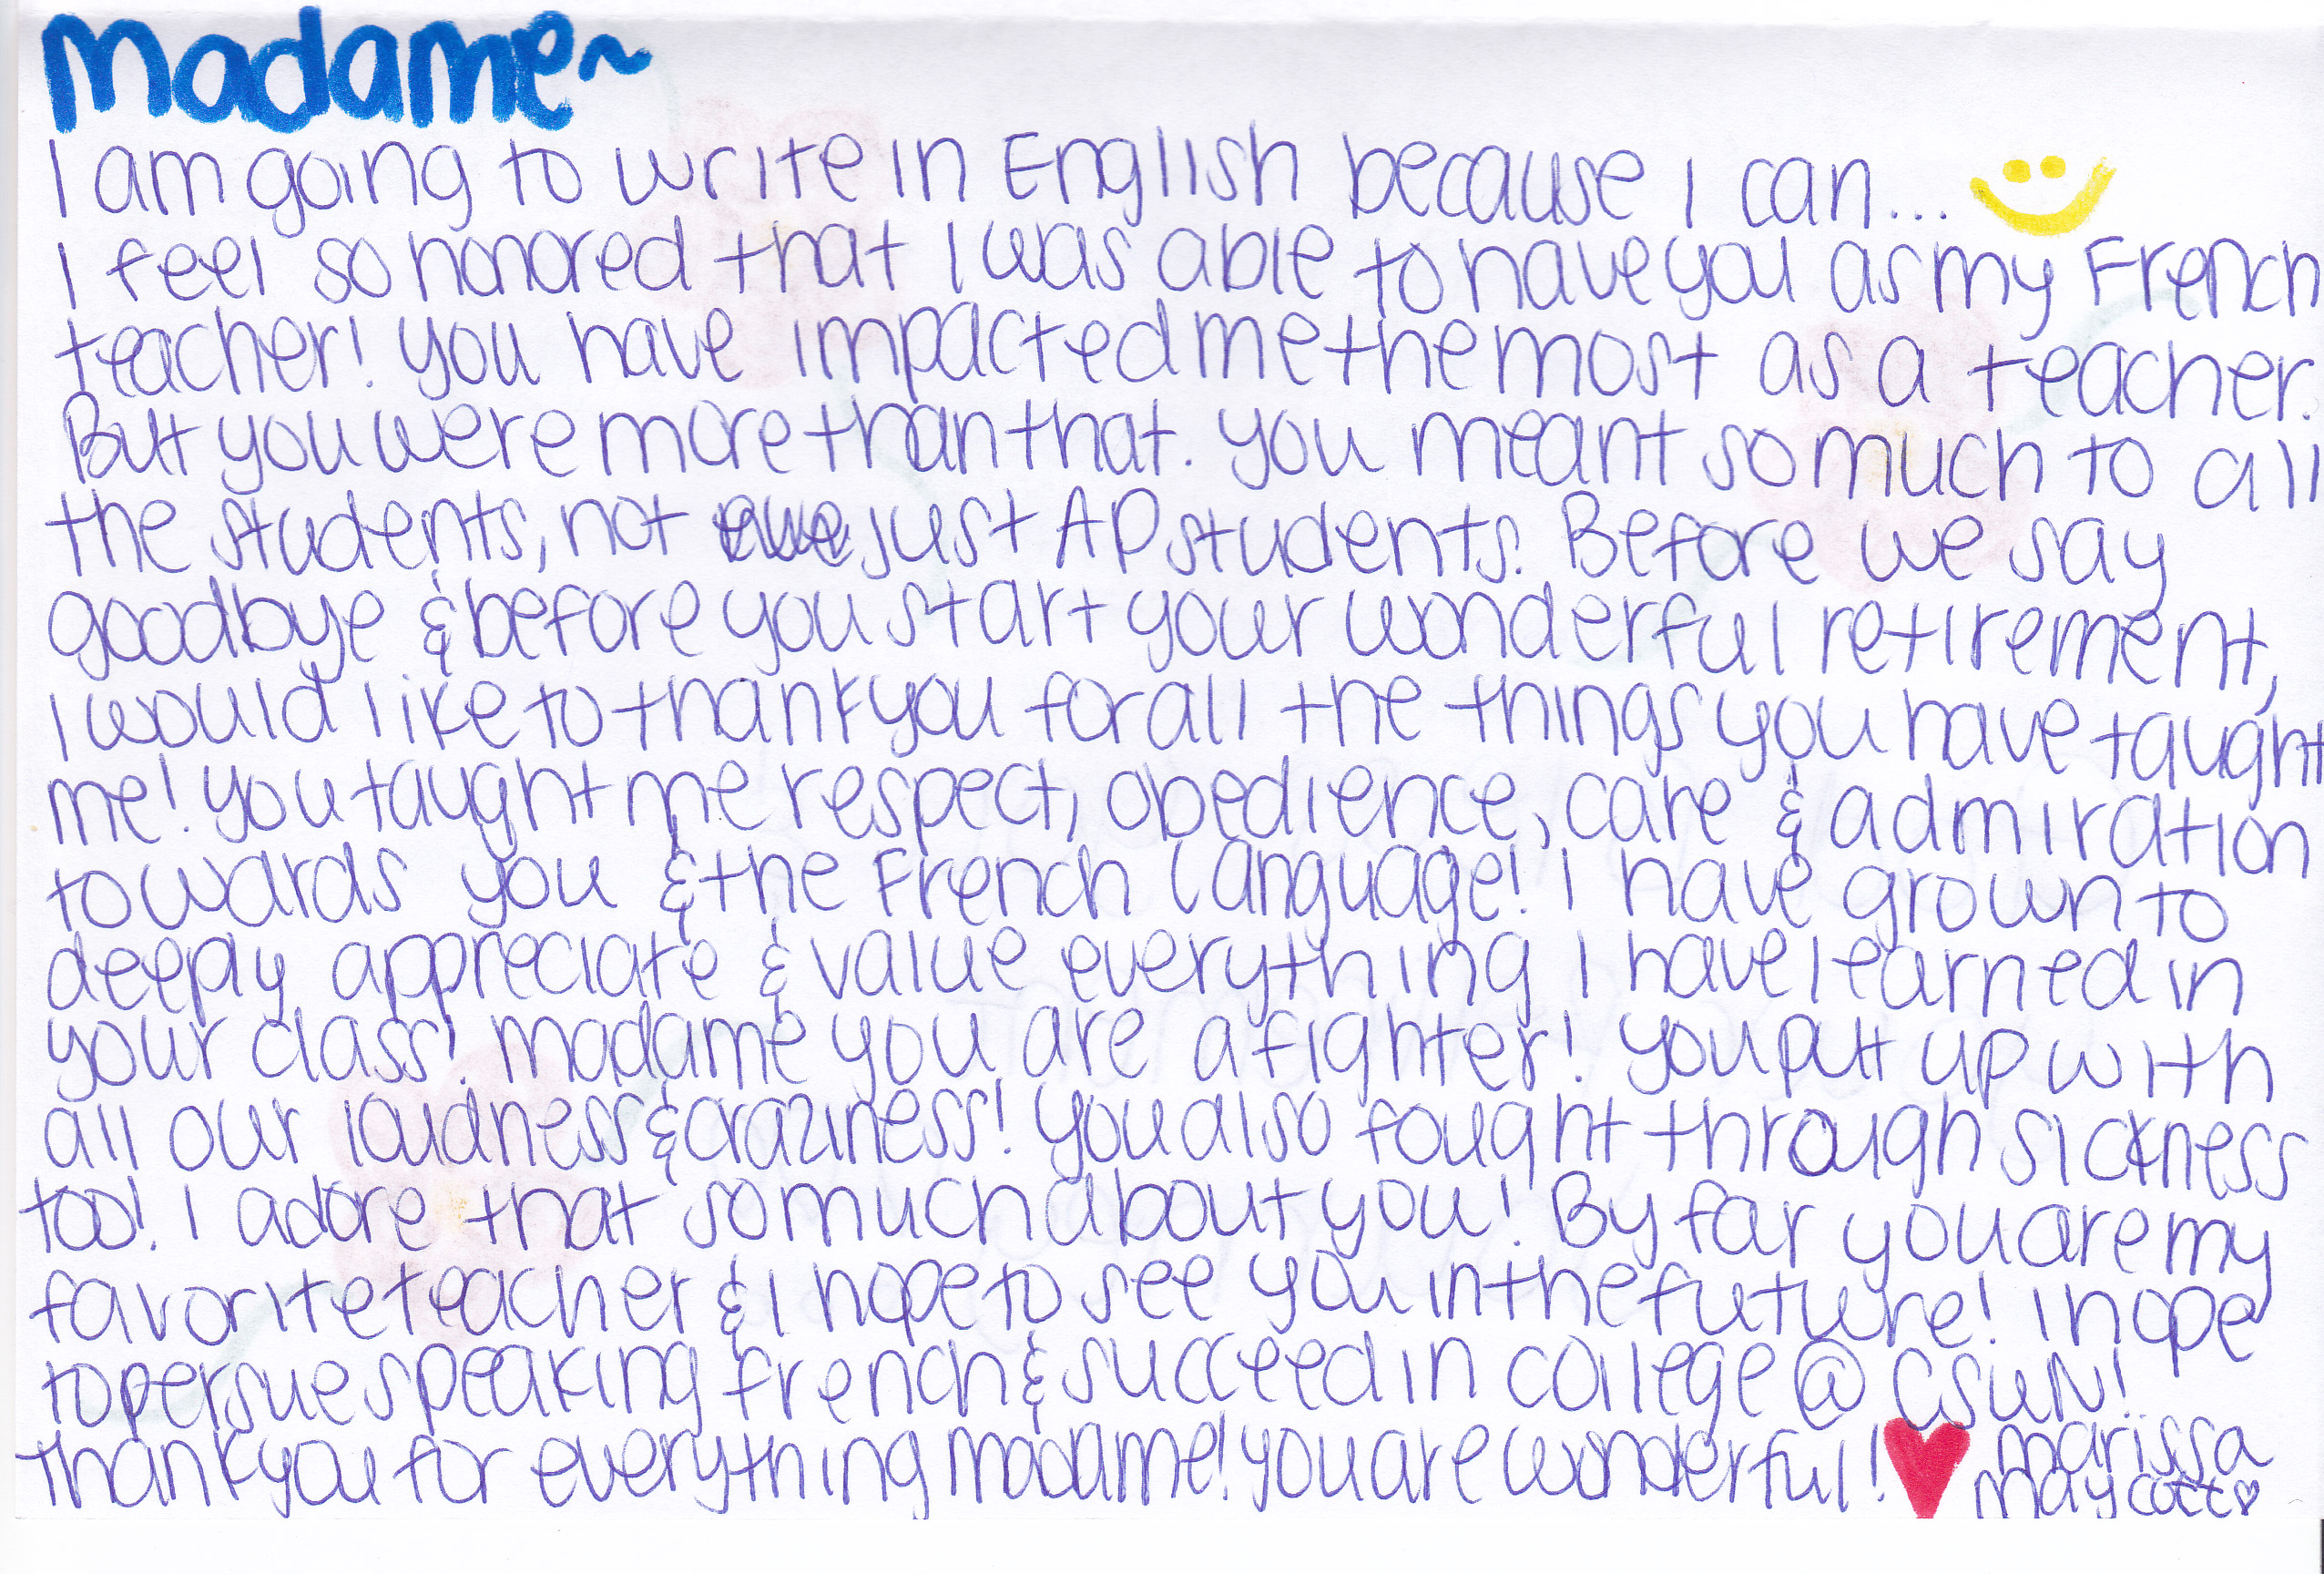 Madame~
I am going to write in English because I can...
I feel so honored that I was able to have you as my French
teacher! You have impacted me the most as a teacher.
But you were more than that. You meant so much to all
the students, not just AP students. Before we say
goodbye & before you start your wonderful retirement,
I would like to thank you for all the things you have taught
me! You taught me respect, obedience, care & admiration
towards you & the French Language! I have grown to
deeply appreciate & value everything I have learned in
your class! Madame you are a fighter! You put up with
all our loudness & craziness! You also fought through sickness
too! I adore that so much about you! By far you are my
favorite teacher & I hope to see you in the future! I hope
to persue speaking french & succeed in college @ CSUN!
Thank you for everything Madame! You are wonderful! Marissa
Maycott